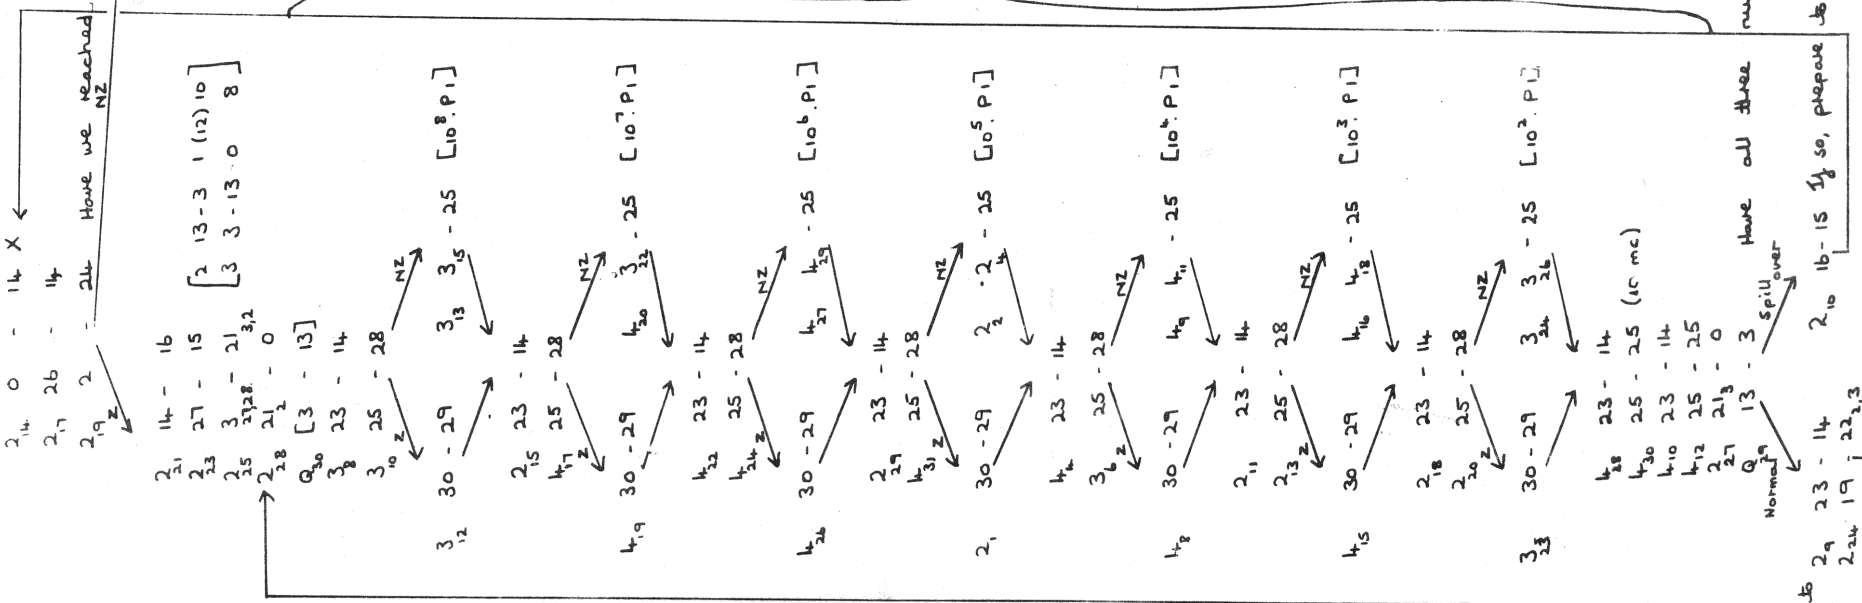 2₁₄ 0 - 14 X
2₁₇ 26 - 14
2₁₉ 2 - 24 Have we reached
Z NZ
2₂₁ 14 - 16
2₂₃ 27 - 15 [2 13-3 1 (12) 10]
2₂₅ 3 - 21 [3 3-13 0 8]
27,28 3,2
2₂₈ 21₂ - 0
Q₃₀ [3 - 13]
3₈ 23 - 14
3₁₀ 25 - 28
Z NZ
3₁₂ 30 - 29 3₁₃ 3₁₅ - 25 [10⁸.P1]
2₁₅ 23 - 14
4₁₇ 25 - 28
Z NZ
4₁₉ 30 - 29 4₂₀ 3₂₂ - 25 [10⁷.P1]
4₂₂ 23 - 14
4₂₄ 25 - 28
Z NZ
4₂₆ 30 - 29 4₂₇ 4₂₉ - 25 [10⁶.P1]
2₂₉ 23 - 14
4₃₁ 25 - 28
Z NZ
2₁ 30 - 29 2₂ 2₄ - 25 [10⁵.P1]
4₄ 23 - 14
3₆ 25 - 28
Z NZ
4₈ 30 - 29 4₉ 4₁₁ - 25 [10⁴.P1]
2₁₁ 23 - 14
2₁₃ 25 - 28
Z NZ
4₁₅ 30 - 29 4₁₆ 4₁₈ - 25 [10³.P1]
2₁₈ 23 - 14
2₂₀ 25 - 28
Z NZ
3₂₃ 30 - 29 3₂₄ 3₂₆ - 25 [10².P1]
4₂₈ 23 - 14
4₃₀ 25 - 25 (10 mc)
4₁₀ 23 - 14
4₁₂ 25 - 25
2₂₇ 21₃ - 0
Q₂₉ 13 - 3 Have all three
Normal Spillover
to 2₉ 23 - 14 2₁₀ 16 - 15 If so, prepare to
2₂₄ 19 - 22₂,₃